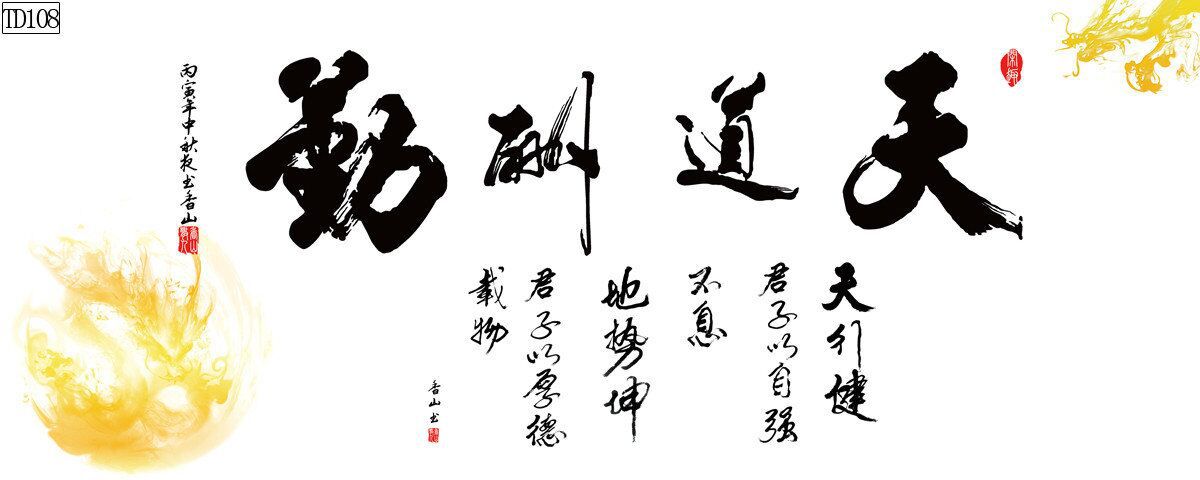 TD108
天道酬勤
天行健
君子以自强
不息
地势坤
君子以厚德
载物
香山书
丙寅年中秋夜书香山